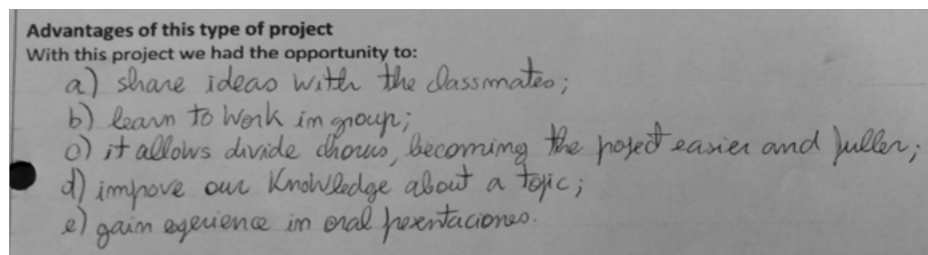 Advantages of this type of project
With this project we had the opportunity to:
a) share ideas with the classmates;
b) learn to work in group;
c) it allows divide chorus, becoming the poject easier and fuller;
d) impove our knowledge about a topic;
e) gain experience in oral pexentaciones.